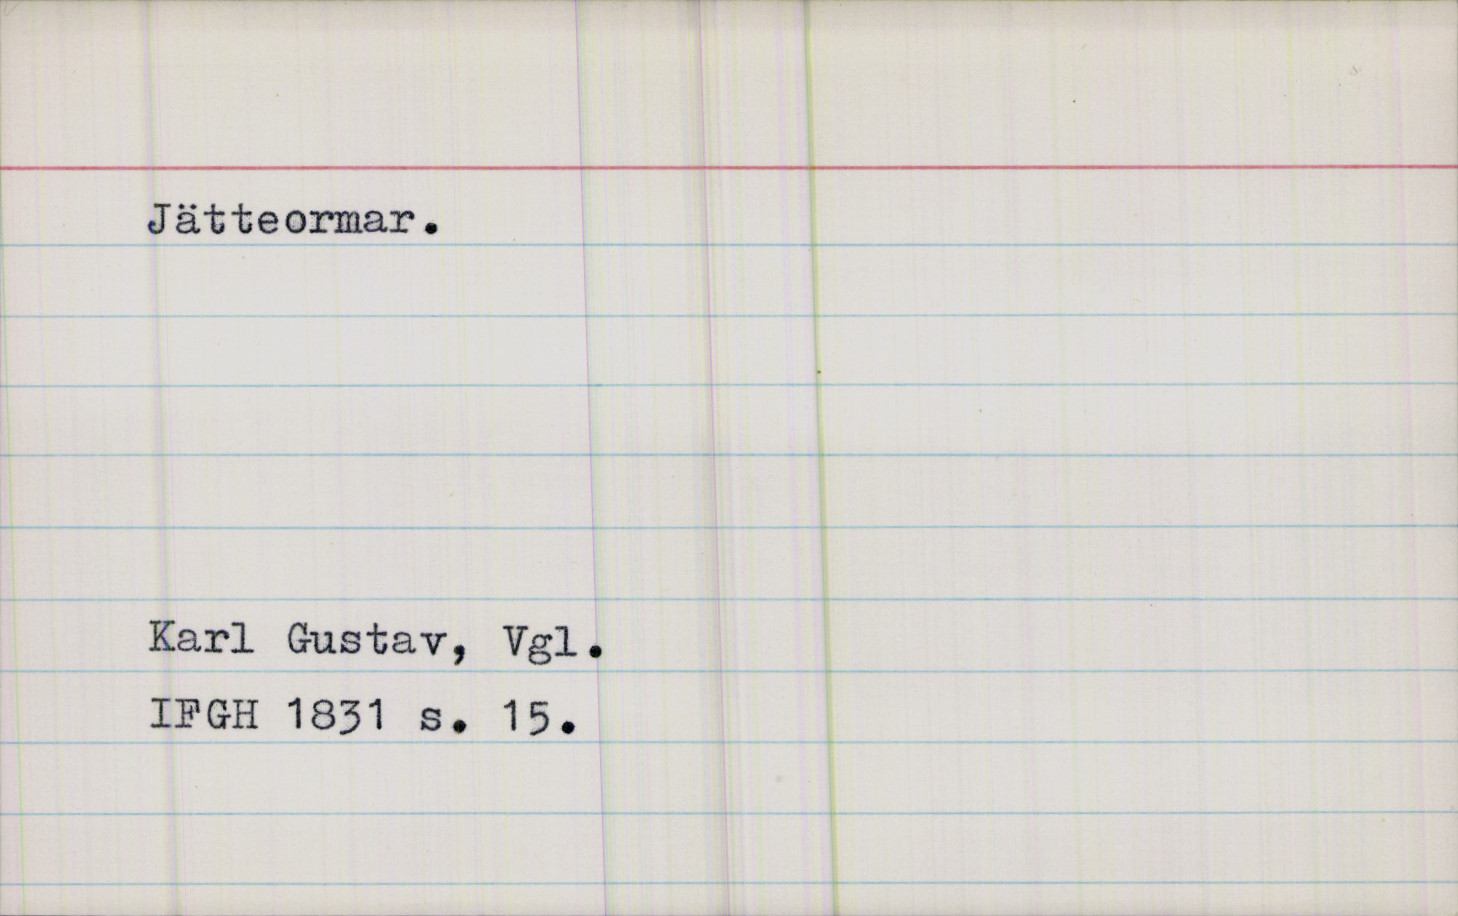 Jätteormar.
Karl Gustav, Vgl.
IFGH 1831 s. 15.